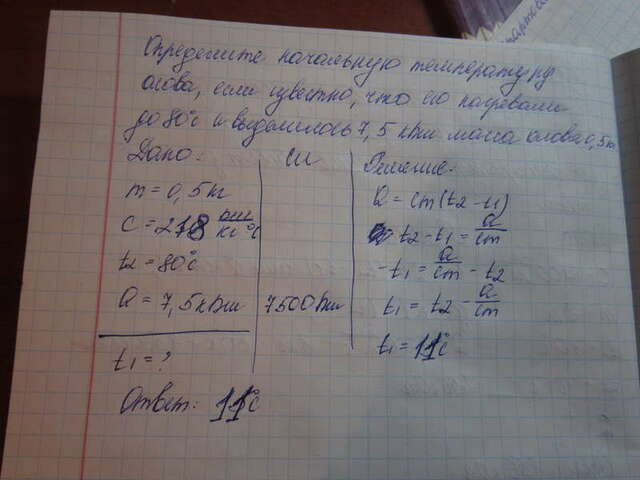 Определите начальную температуру
олова, если известно, что его нагревали
до 80°с и выделилось 7,5 кДж масса олова 0,5кг
Дано:
СИ
Решение:
m = 0,5 кг
c = 218 Дж/кг°с
t2 = 80°с
Q = 7,5 кДж
7500 Дж
t1 = ?
Q = cm(t2 - t1)
t2 - t1 = Q/cm
-t1 = Q/cm - t2
t1 = t2 - Q/cm
t1 = 11°с
Ответ: 11°с